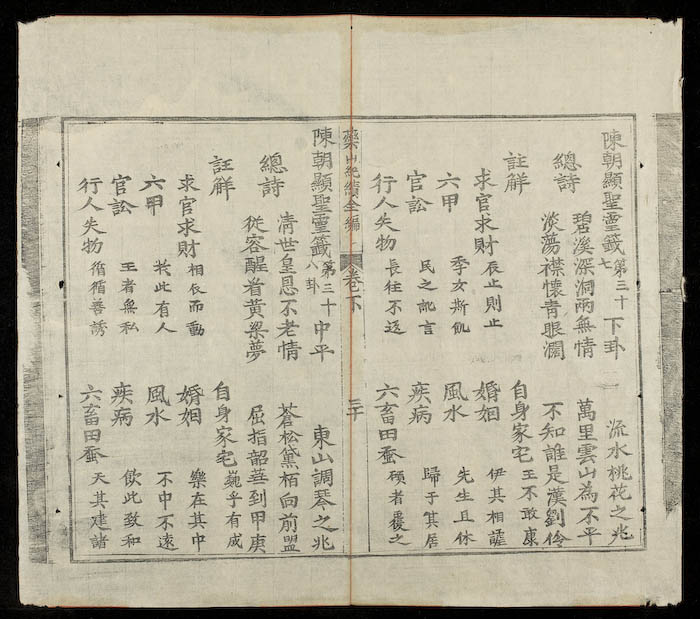 陳朝顯聖靈籤第三十七 下卦 流水桃花之兆
總詩 碧溪深洞兩無情 萬里雲山為不平
淡蕩襟懷青眼濶 不知誰是漢劉伶
註解 自身家宅 王不敢康
求官求財 辰止則止 婚姻 伊其相謔
六甲 季女斯飢 風水 先生且休
官訟 民之訛言 疾病 歸于其居
行人失物 長往不返 六畜田蚕 碩者覆之
藥山紀績全編 卷下 三十
陳朝顯聖靈籤第三十八卦 中平 東山調琴之兆
總詩 清世皇恩不老情 蒼松黛栢向前盟
從容醒看黃粱夢 屈指韶華到甲庚
註解 自身家宅 巍乎有成
求官求財 相反而動 婚姻 樂在其中
六甲 於此有人 風水 不中不遠
官訟 王者無私 疾病 飲此致和
行人失物 循循善誘 六畜田蚕 天其建諸